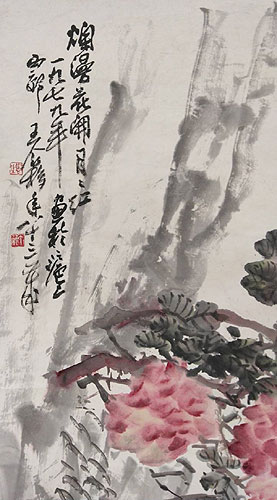 烂漫花开月月红
一九七九年 画于沪上
西郊 王个簃年八十三岁